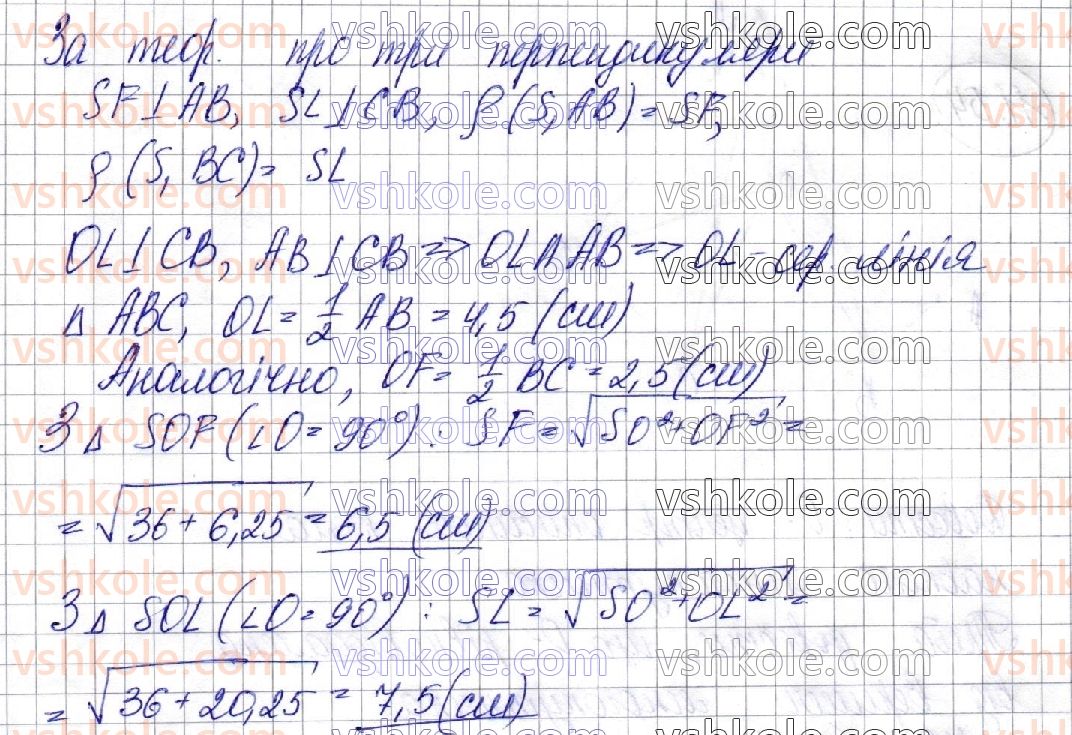 За теор. про три перпендикуляри
SF⊥AB, SL⊥CB, ρ(S, AB) = SF,
ρ(S, BC) = SL
OL⊥CB, AB⊥CB => OL∥AB => OL - сер. лінія
△ ABC, OL = 1/2 AB = 4,5 (см)
Аналогічно, OF = 1/2 BC = 2,5 (см)
З △ SOF (∠O = 90°): SF = √(SO² + OF²) =
= √(36 + 6,25) = 6,5 (см)
З △ SOL (∠O = 90°): SL = √(SO² + OL²) =
= √(36 + 20,25) = 7,5 (см)
vshkole.com